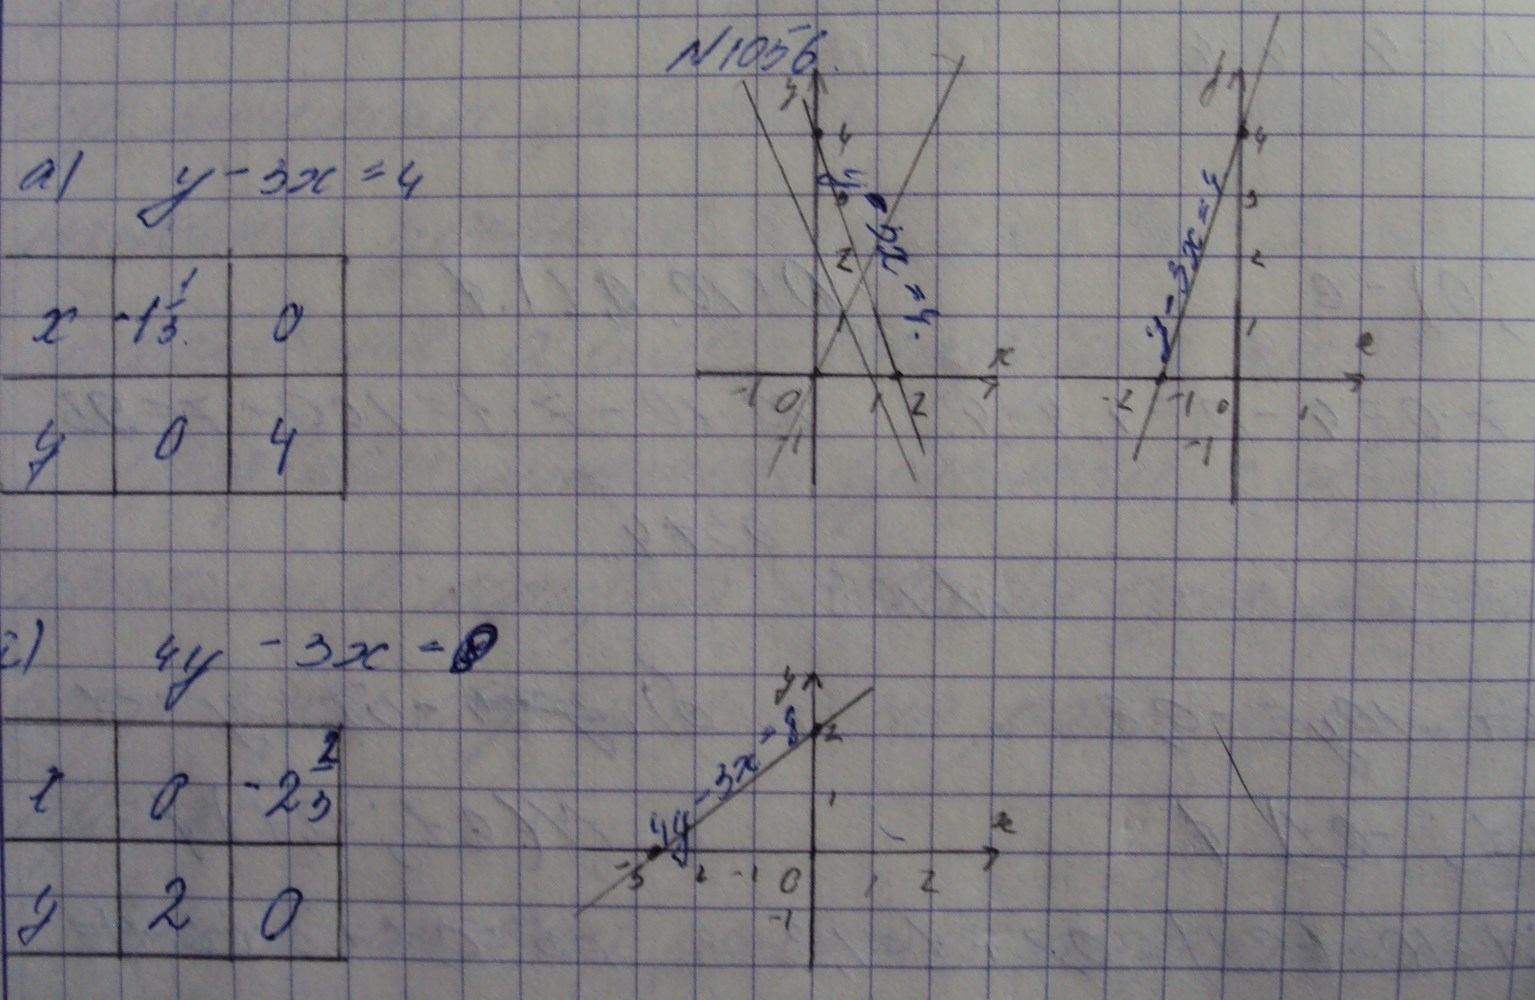 N1056.
а) y - 3x = 4
x -1 1/3. 0
y 0 4
y
4
3
2
1
-1 0 1 2
x
-1
y - 3x = 4.
y
4
3
2
1
-2 -1 0 1
x
-1
y - 3x = 4
4y - 3x =
x 0 -2 2/3
y 2 0
y
2
1
-3 2 -1 0 1 2
x
-1
4y - 3x = 8